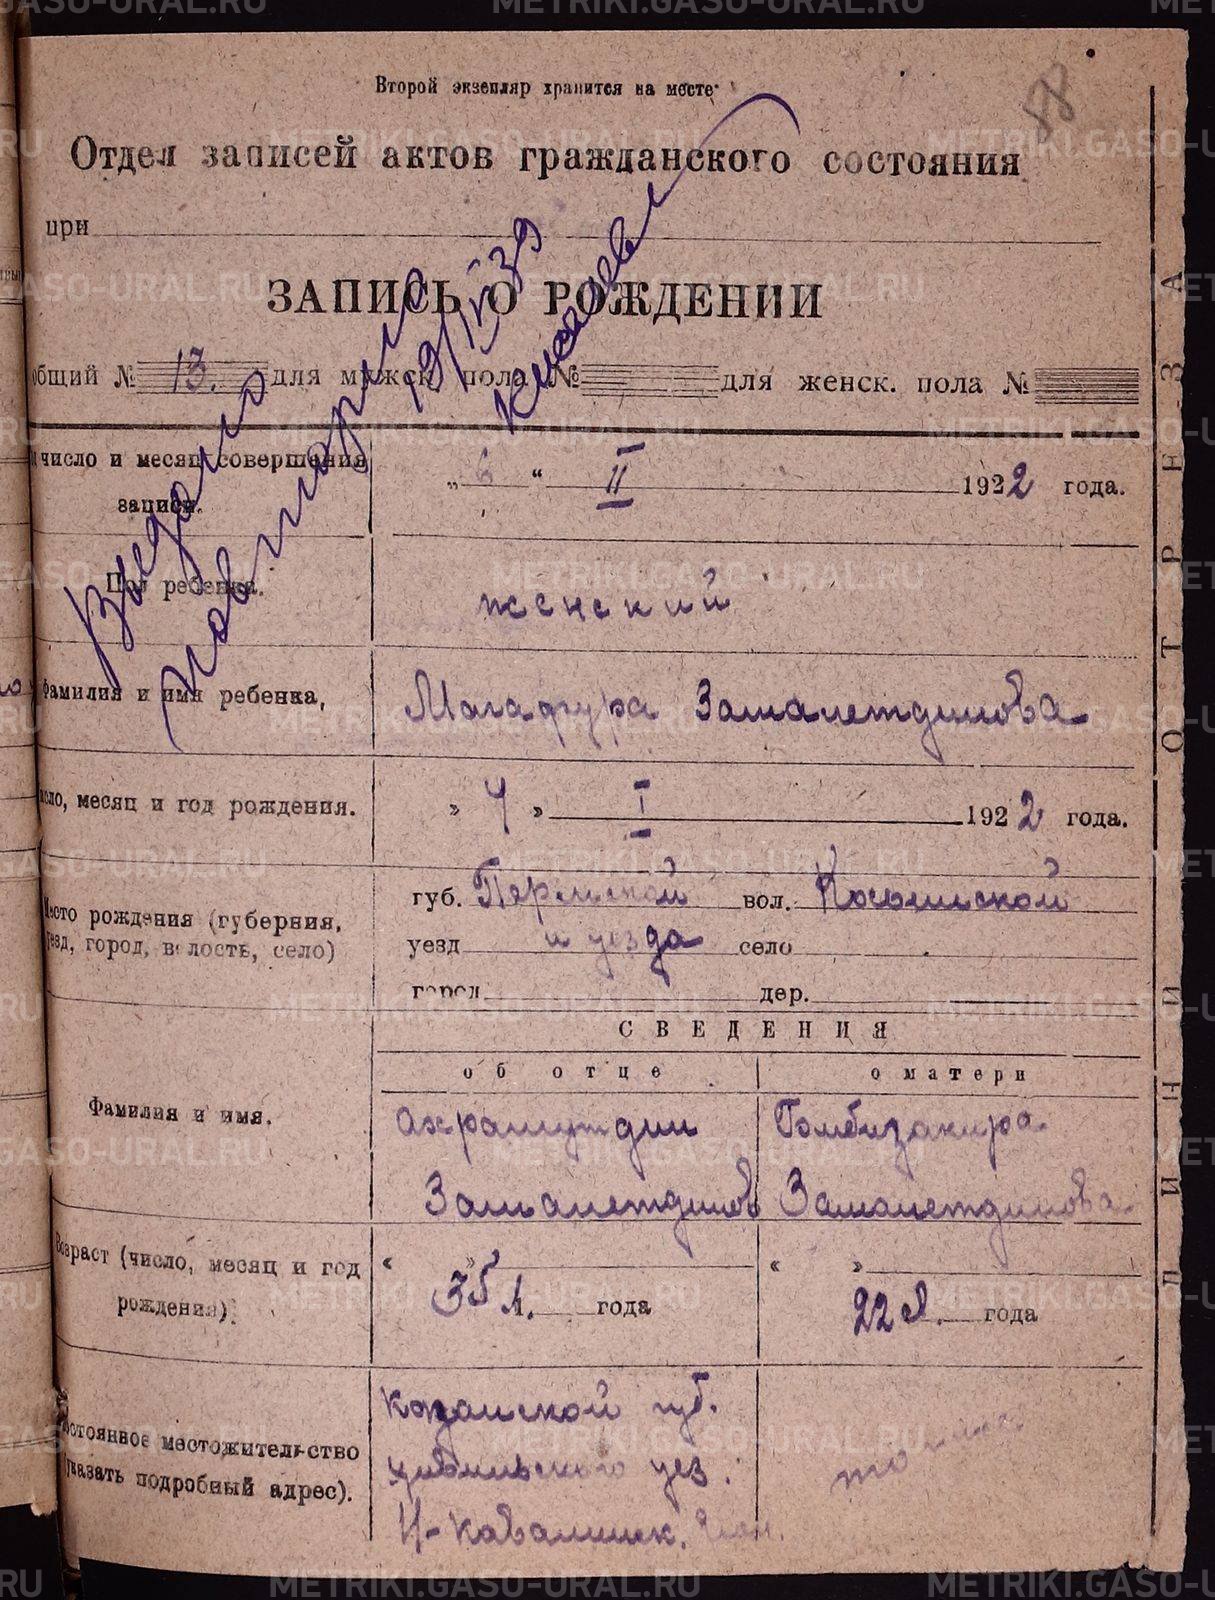 Второй экзепляр хранится на месте
88
Отдел записей актов гражданского состояния
при
ЗАПИСЬ О РОЖДЕНИИ
общий № 13. для мужск. пола № для женск. пола №
Выдано
повторно
19/IV 39
число и месяц совершения
записи.
„ 6 “ II 1922 года.
Пол ребенка.
женский
Фамилия и имя ребенка,
Магафура Замалетдинова
число, месяц и год рождения.
» 4 » I 1922 года.
Место рождения (губерния,
уезд, город, волость, село)
губ. Пермской вол. Косьинской
уезд и уезда село
город дер.
СВЕДЕНИЯ
об отце
о матери
Фамилия и имя.
Ахрамутдин
Замалетдинов
Гомбизакира
Замалетдинова
Возраст (число, месяц и год
рождения).
« » 35 л. года
« » 22 л. года
Постоянное местожительство
(указать подробный адрес).
Казанской губ.
цивильского уез.
Н-Ковалинск.
ЛИНИЯ ОТРЕЗА
METRIKI.GASO-URAL.RU